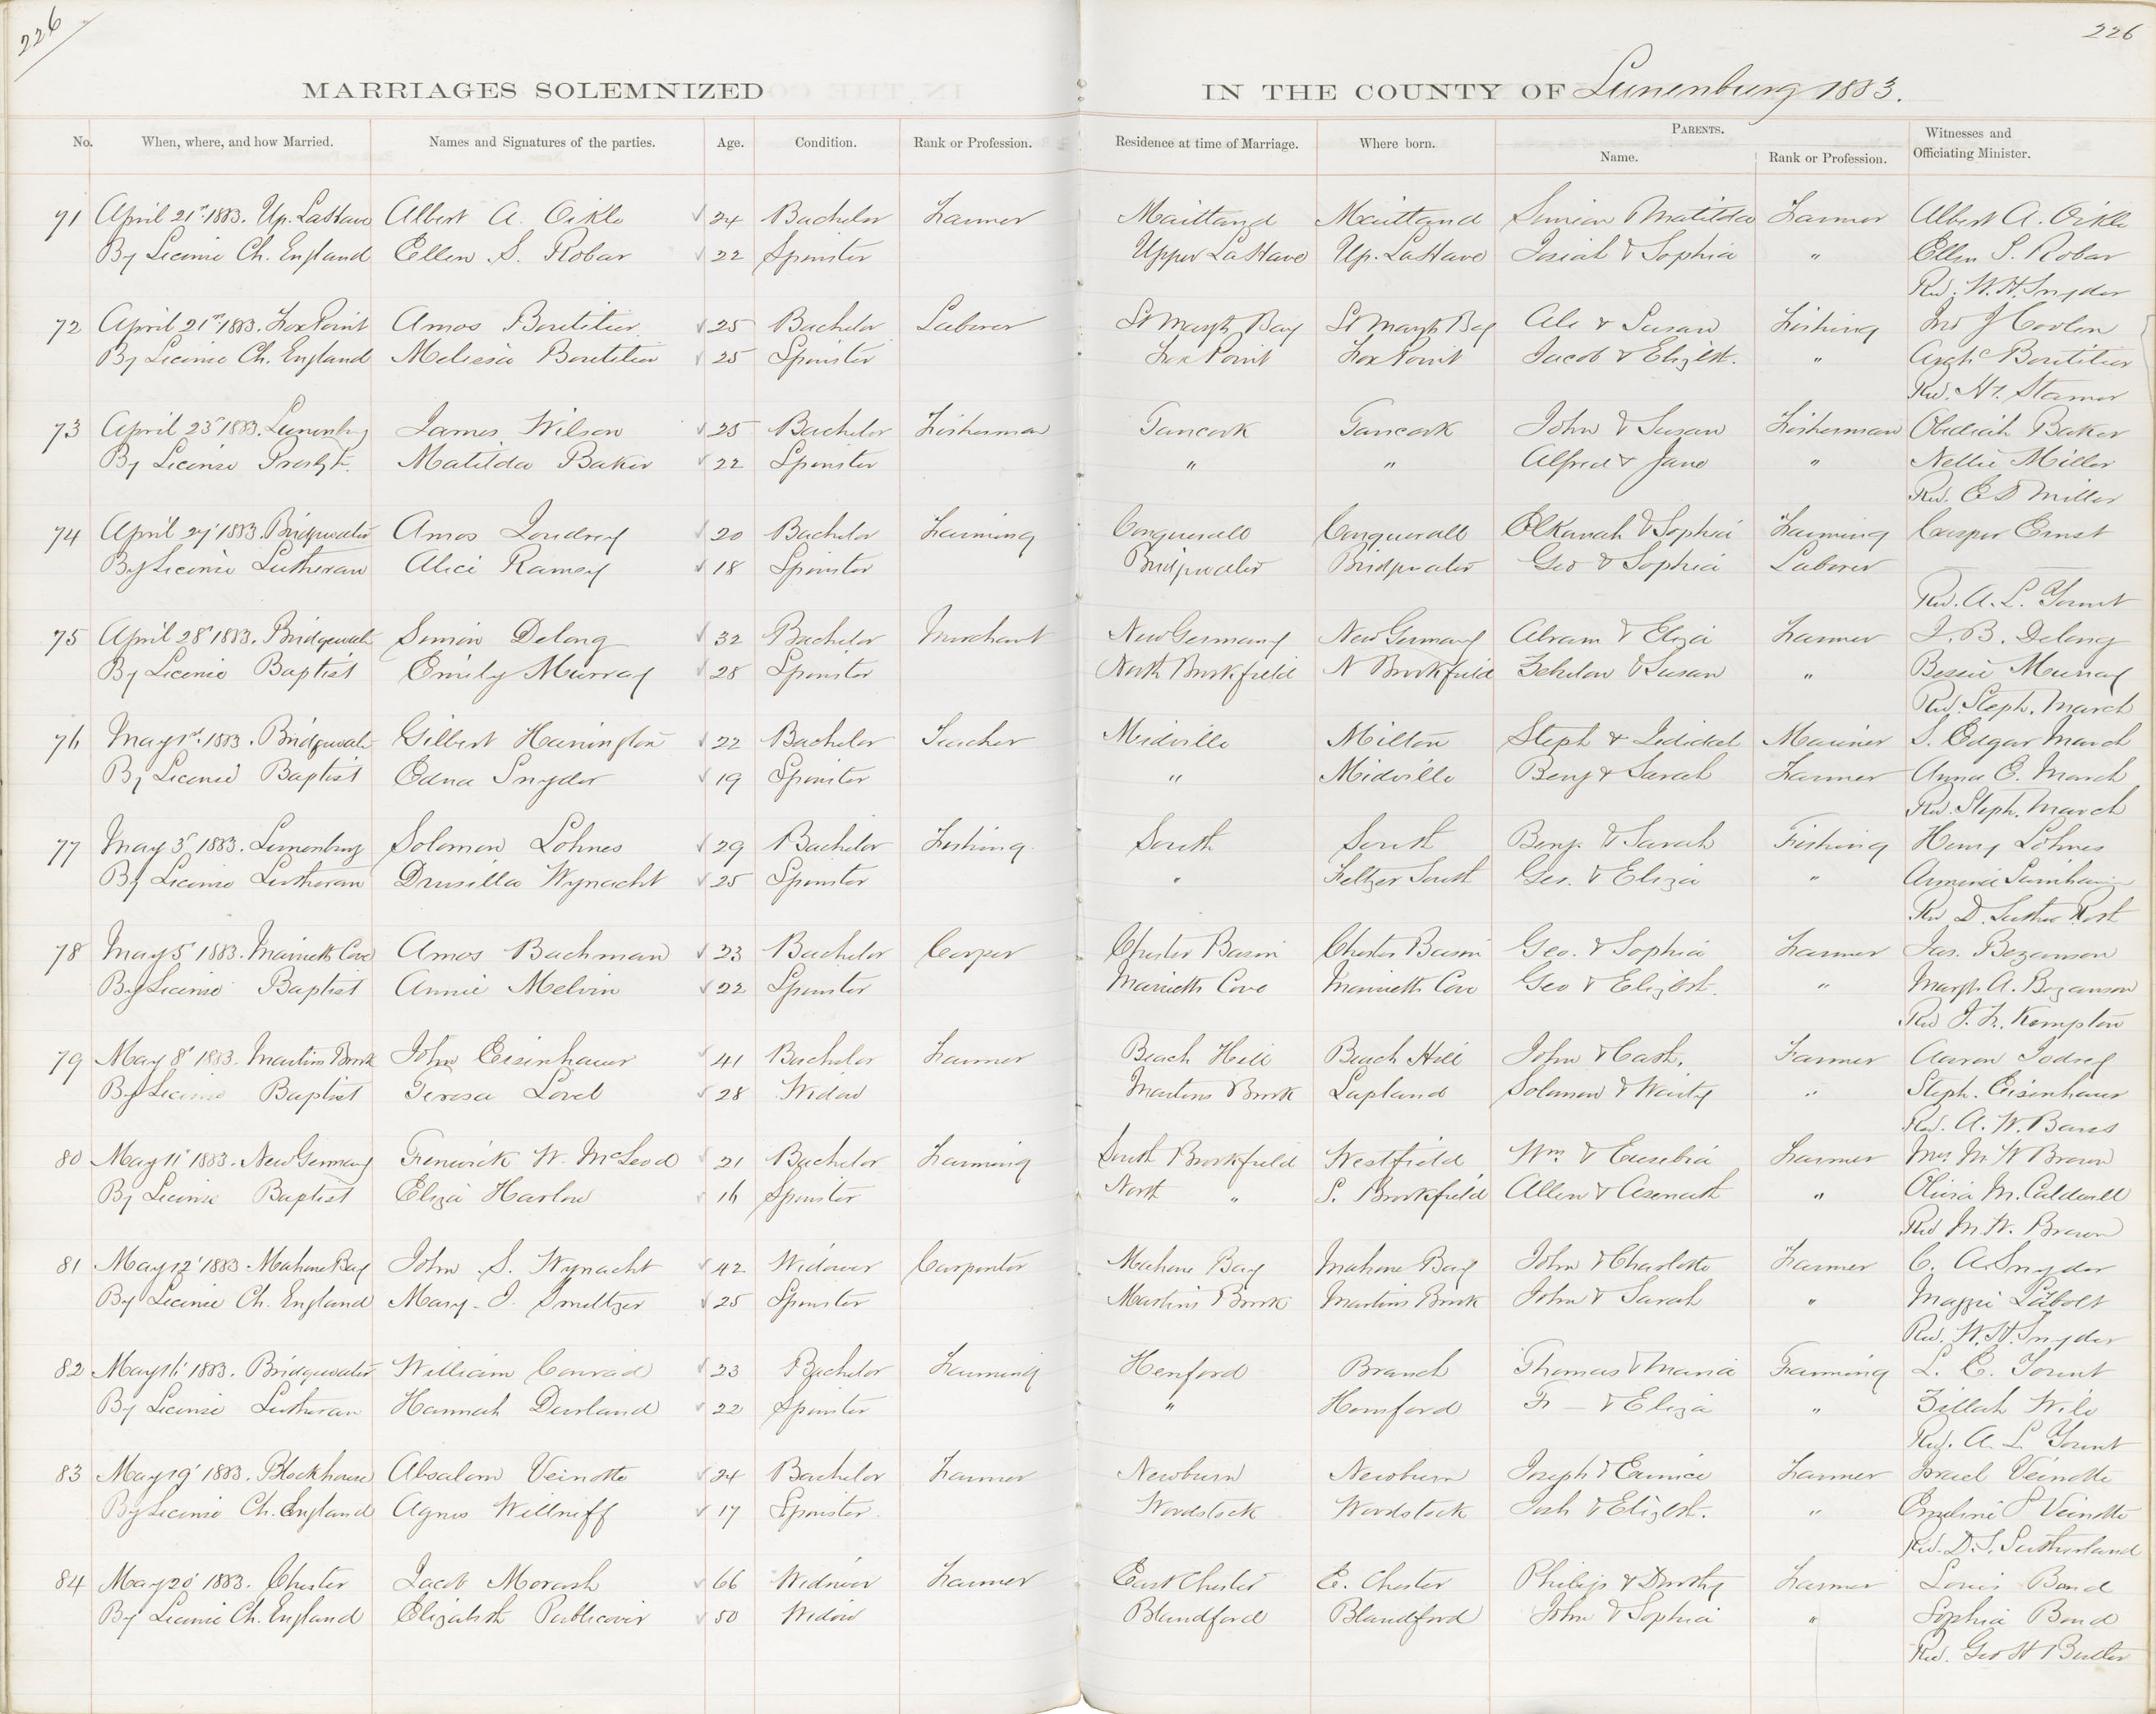 226
226
MARRIAGES SOLEMNIZED IN THE COUNTY OF Lunenburg 1883.
No. When, where, and how Married. Names and Signatures of the parties. Age. Condition. Rank or Profession. Residence at time of Marriage. Where born. PARENTS. Name. Rank or Profession. Witnesses and Officiating Minister.
71 April 21st 1883. Up. LaHave Albert A. Oikle 24 Bachelor Farmer Maitland Maitland Simion Matilda Farmer Albert A. Oikle
By License Ch. England Ellen S. Robar 22 Spinster Upper LaHave Up. LaHave Josiah & Sophia " Ellen S. Robar
Rev. W. H. Snyder
72 April 21st 1883. Fox Point Amos Boutilier 25 Bachelor Laborer St Margts Bay St Margts Bay & Susan Fishing
By License Ch. England Melissa Boutilier 25 Spinster Fox Point Fox Point Jacob & Elizbt. " Boutilier
Rev. Hy. Stamer
73 April 23 1883. Lunenburg James Wilson 25 Bachelor Fisherman Tancook Tancook John & Susan Fisherman Obediah Baker
By License Presbyt. Matilda Baker 22 Spinster " " Alfred & Jane " Nellie Miller
Rev. E D Miller
74 April 27 1883. Bridgwater Amos Joudrey 20 Bachelor Farming Conquerall Conquerall Elkanah & Sophia Farming Casper Ernst
By License Lutheran Alice Ramey 18 Spinster Bridgwater Bridgwater Geo & Sophia Laborer
Rev. A. L. Yount
75 April 28 1883. Bridgewatr Simion Delong 32 Bachelor Merchant New Germany New Germany Abram & Eliza Farmer J. B. Delong
By License Baptist Emily Murray 28 Spinster North Brookfield N Brookfield Zebulon & Susan " Bessie Murray
Rev. Steph. March
76 May 1st 1883. Bridgwatr Gilbert Harrington 22 Bachelor Teacher Midville Milton Steph & Mariner S. Edgar March
By License Baptist Edna Snyder 19 Spinster " Midville Benj & Sarah Farmer Anna E. March
Rev. Steph. March
77 May 3 1883. Lunenburg Solomon Lohnes 29 Bachelor Fishing South South Benj. & Sarah Fishing Henry Lohnes
By License Lutheran Drusilla Wynacht 25 Spinster " Feltzer South Geo. & Eliza "
Rev D. Luther Roth
78 May 5 1883. Marriotts Cove Amos Bachman 23 Bachelor Carper Chester Basin Chester Basin Geo. & Sophia Farmer Jas. Bezanson
By License Baptist Annie Melvin 22 Spinster Marriotts Cove Marriotts Cove Geo & Elizbt. " Margt A. Bezanson
Rev J. F. Kempton
79 May 8 1883. Martins Brook John Eisenhauer 41 Bachelor Farmer Beach Hill Beach Hill John & Cath. Farmer Aaron Jodrey
By License Baptist Teresa Lovel 28 Widow Martins Brook Lapland Solomon & Waity " Steph. Eisenhaur
Rev. A. W. Bares
80 May 11 1883. New Germany Frenwick W. McLeod 21 Bachelor Farming South Brookfield Westfield Wm & Eusebia Farmer Mrs M. W Brown
By License Baptist Eliza Harlow 16 Spinster North " S. Brookfield Allen & Asenath " Olivia M. Caldwell
Rev M. W. Brown
81 May 12 1883 Mahone Bay John S. Wynacht 42 Widower Carpenter Mahone Bay Mahone Bay John & Charlotte Farmer C. A. Snyder
By License Ch. England Mary J. Smeltzer 25 Spinster Martins Brook Martins Brook John & Sarah " Maggie Labolt
Rev. W. H. Snyder
82 May 16 1883. Bridgewater William Conrad 23 Bachelor Farming Hemford Branch Thomas & Maria Farming L. E. Yount
By License Lutheran Hannah Durland 22 Spinster " Hemford Fr — & Eliza " Zillah Wile
Rev. A. L Yount
83 May 19 1883. Blockhouse Absalom Veinotte 24 Bachelor Farmer Newburn Newburn Joseph & Eunice Farmer Israel Veinotte
By License Ch. England Agnes Wiltneff 17 Spinster Woodstock Woodstock Josh & Elizbt. " Emeline S Veinotte
Rev. D. S. Sutherland
84 May 20 1883. Chester Jacob Morash 66 Widower Farmer East Chester E. Chester Philip & Dorothy Farmer Louis Bond
By License Ch. England Elizabeth Publicover 50 Widow Blandford Blandford John & Sophia " Sophia Bond
Rev. Geo H Butler